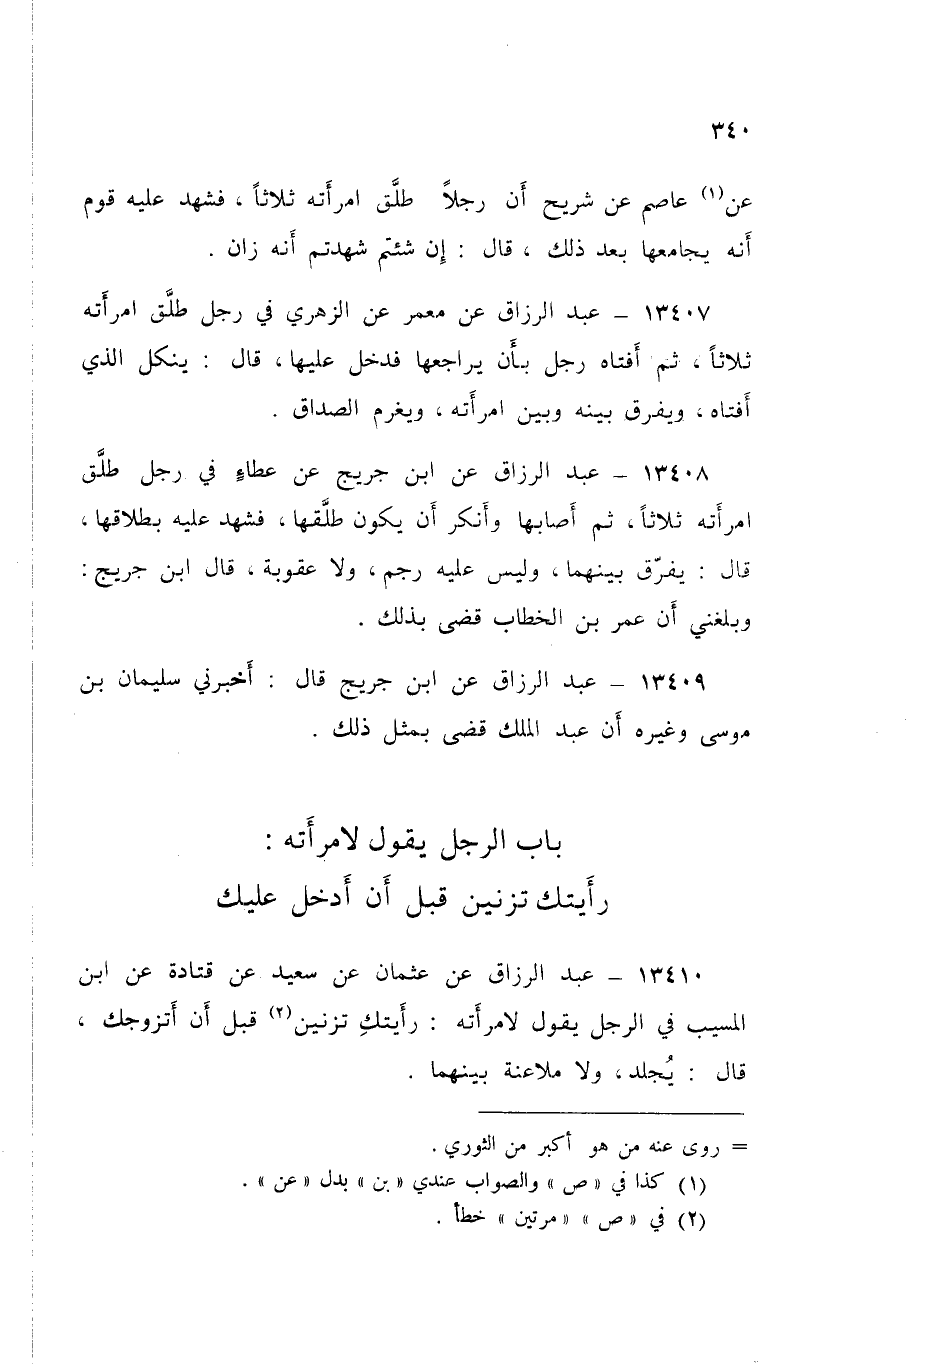 ٣٤٠
عن(١) عاصم عن شريح أن رجلاً طلَّق امرأته ثلاثاً ، فشهد عليه قوم
أنه يجامعها بعد ذلك ، قال : إن شئتم شهدتم أنه زان .
١٣٤٠٧ – عبد الرزاق عن معمر عن الزهري في رجل طلَّق امرأته
ثلاثاً ، ثم أفتاه رجل بأن يراجعها فدخل عليها ، قال : ينكل الذي
أفتاه ، ويفرق بينه وبين امرأته ، ويغرم الصداق .
١٣٤٠٨ – عبد الرزاق عن ابن جريج عن عطاءٍ في رجل طلَّق
امرأته ثلاثاً ، ثم أصابها وأنكر أن يكون طلَّقها ، فشهد عليه بطلاقها ،
قال : يفرّق بينهما ، وليس عليه رجم ، ولا عقوبة ، قال ابن جريج :
وبلغني أن عمر بن الخطاب قضى بذلك .
١٣٤٠٩ – عبد الرزاق عن ابن جريج قال : أخبرني سليمان بن
موسى وغيره أن عبد الملك قضى بمثل ذلك .
باب الرجل يقول لامرأته :
رأيتك تزنين قبل أن أدخل عليك
١٣٤١٠ – عبد الرزاق عن عثمان عن سعيد عن قتادة عن ابن
المسيب في الرجل يقول لامرأته : رأيتكِ تزنين(٢) قبل أن أتزوجك ،
قال : يُجلد ، ولا ملاعنة بينهما .
= روى عنه من هو أكبر من الثوري .
(١) كذا في « ص » والصواب عندي « بن » بدل « عن » .
(٢) في « ص » « مرتين » خطأ .